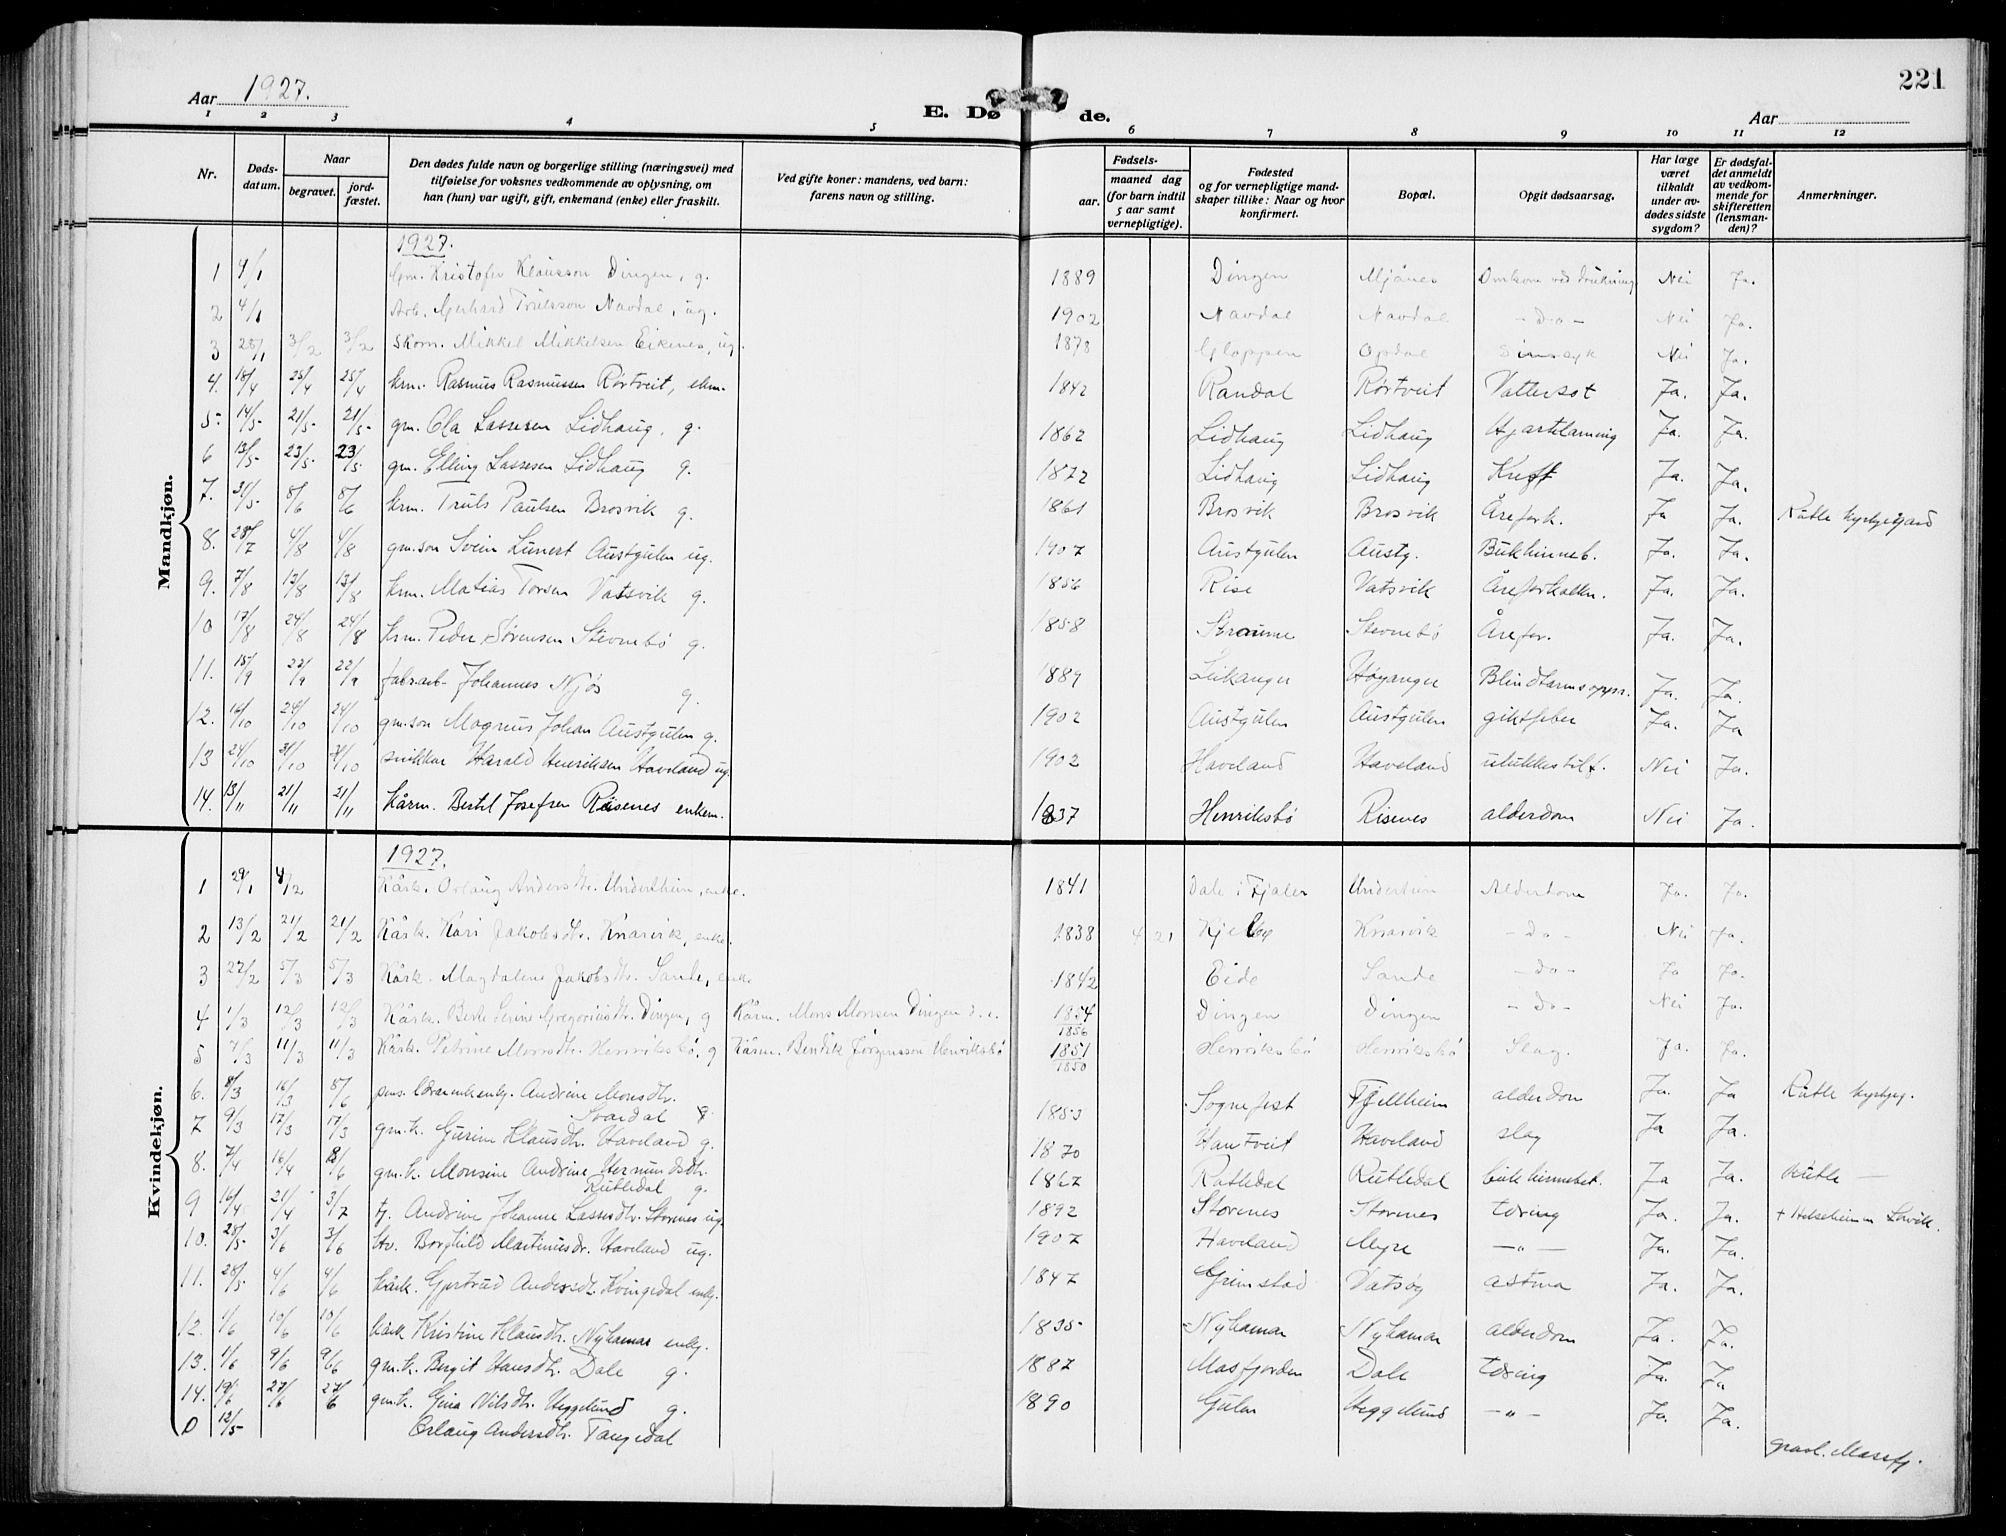 Aar 1927.
E. Døde.
Aar
221
1 2 3 4 5 6 7 8 9 10 11 12
Nr.
Døds-datum.
Naar
begravet.
jord-fæstet.
Den dødes fulde navn og borgerlige stilling (næringsvei) med
tilføielse for voksnes vedkommende av oplysning, om
han (hun) var ugift, gift, enkemand (enke) eller fraskilt.
Ved gifte koner: mandens, ved barn:
farens navn og stilling.
Fødsels-
aar.
maaned dag
(for barn indtil
5 aar samt
vernepligtige).
Fødested
og for vernepligtige mand-
skaper tillike: Naar og hvor
konfirmert.
Bopæl.
Opgit dødsaarsag.
Har læge
været
tilkaldt
under av-
dødes sidste
sygdom?
Er dødsfal-
det anmeldt
av vedkom-
mende for
skifteretten
(lensman-
den)?
Anmerkninger.
Mandkjøn.
1927.
1 4/1 Gm. Kristofer Klausson Dingen, g. 1889 Dingen Mjånes Omkom ved drukning Nei Ja.
2 4/1 Arb. Gerhard Trulsson Navdal, ug. 1902 Navdal Navdal - Do - Nei Ja.
3 28/1 3/2 3/2 Skom. Mikkel Mikkelsen Eikenes, ug. 1878 Gloppen Opdal Sinnsyk Nei Ja.
4. 18/4 25/4 25/4 krm. Rasmus Rasmussen Rørtveit, ekm. 1842 Randal Rørtveit Vattersot Ja. Ja.
5 14/5 21/5 21/5 gm. Ola Lassesen Lidhaug, g. 1862 Lidhaug Lidhaug Hjartelamning Ja. Ja.
6 13/5 23/5 23/5 gm. Elling Lassesen Lidhaug g. 1872 Lidhaug Lidhaug Kreft Ja. Ja.
7. 31/5 8/6 8/6 krm. Truls Paulsen Brosvik g. 1861 Brosvik Brosvik Årefork. Ja Ja. Rutle kyrkjegard
8. 28/7 4/8 4/8 gm.son Svein Lunert Austgulen ug. 1907 Austgulen Austg. Bukhinneb. Ja. Ja.
9. 7/8 13/8 13/8 krm. Matias Torsen Vatsvik g. 1856 Rise Vatsvik Åreforkalkn. Ja. Ja.
10 17/8 24/8 24/8 krm. Peder Sørensen Stevnebø g. 1858 Straume Stevnebø Årefor. Ja. Ja.
11. 15/9 22/9 22/9 fabr.arb. Johannes Njøs g. 1889 Leikanger Høyanger Blindtarmsoppr. Ja. Ja.
12. 16/10 24/10 24/10 gm.son Magnus Johan Austgulen g. 1902 Austgulen Austgulen giktfeber Ja. Ja
13 24/10 31/10 31/10 snikkar Harald Henriksen Haveland ug. 1902 Haveland Haveland ulukkestilf. Nei Ja.
14. 13/11 21/11 21/11 kårm. Bertil Josefsen Risenes enkem. 1837 Henriksbø Risenes alderdom Nei Ja.
Kvindekjøn.
1927.
1 29/1 4/2 Kårk. Orlaug Andersdtr. Undertheim, enke. 1841 Dale i Fjaler Undertheim Alderdom Ja. Ja.
2 13/2 21/2 21/2 Kårk. Kari Jakobsdtr. Knarvik, enke. 1838 4 21 Kjelby Knarvik - Do - Nei Ja.
3 27/2 5/3 5/3 Kårk. Magdalene Jakobsdtr. Sande, enke 1842 Eide Sande - Do - Ja Ja.
4 1/3 12/3 12/3 Kårk. Berte Serine Gregoriusdtr. Dingen, g Kårm. Mons Monsen Dingen 1854 1856 Dingen Dingen - Do - Nei Ja.
5 7/3 11/3 11/3 Kårk. Petrine Monsdtr. Henriksbø, g Kårm. Bendik Jørgensson Henriksbø 1851 1850 Henriksbø Henriksbø Slag. Ja. Ja.
6. 8/3 16/3 8/6 pens. Andrine Monsdtr. Svardal 1853 Sognefest Fjellheim alderdom Ja. Ja Rutle kyrkjeg.
7 9/3 17/3 17/3 gm.k. Gurine Klausdtr. Haveland g. 1870 Hantveit Haveland slag Ja Ja.
8. 7/4 16/4 8/6 gm.k. Monsine Andrine Hermundsdtr. Rutledal g. 1867 Rutledal Rutledal bukhinnebet. Ja Ja. Rutle —
9 16/4 21/4 3/7 tj. Andrine Johanne Lassesdtr. Storenes ug. 1892 Storenes Storenes tæring Ja. Ja. + Helseheimen Lavik.
10. 28/5 3/6 3/6 Borghild Martinusdr. Haveland ug. 1907 Haveland Myre — " — Ja. Ja.
11. 28/5 4/6 4/6 kårk. Gjertrud Andersdt. Kvingedal enkj. 1847 Grimstad Vatsøy astma Ja. Ja.
12. 1/6 10/6 10/6 kårk Kristine Klausdtr. Nyhamar enkj. 1835 Nyhamar Nyhamar alderdom Ja. Ja.
13. 1/6 9/6 9/6 gm.k. Bergit Hansdtr. Dale g. 1887 Masfjorden Dale tæring Ja. Ja
14. 19/6 27/6 27/6 gm.k. Gina Nilsdtr. Heggelund g. 1890 Gulen Heggelund — " — Ja. Ja.
0 12/5 Orlaug Andersdtr. Tangedal gravl. Masfj.